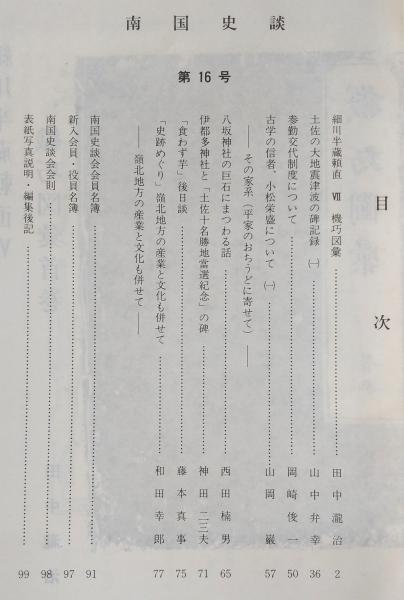 南国史談
第16号
目次
細川半蔵頼直 Ⅶ 機巧図彙……田中瀧治 2
土佐の大地震津波の碑記録 ㈠……山中弁幸 36
参勤交代制度について……岡崎俊一 50
古学の信者、小松栄盛について ㈠……山岡巌 57
―― その家系(平家のおちうどに寄せて) ――
八坂神社の巨石にまつわる話……西田楠男 65
伊都多神社と「土佐十名勝地當選紀念」の碑……神田二三夫 71
「食わず芋」後日談……藤本真事 75
「史跡めぐり」嶺北地方の産業と文化も併せて……和田幸郎 77
―― 嶺北地方の産業と文化も併せて ――
南国史談会会員名簿……91
新入会員・役員名簿……97
南国史談会会則……98
表紙写真説明・編集後記……99